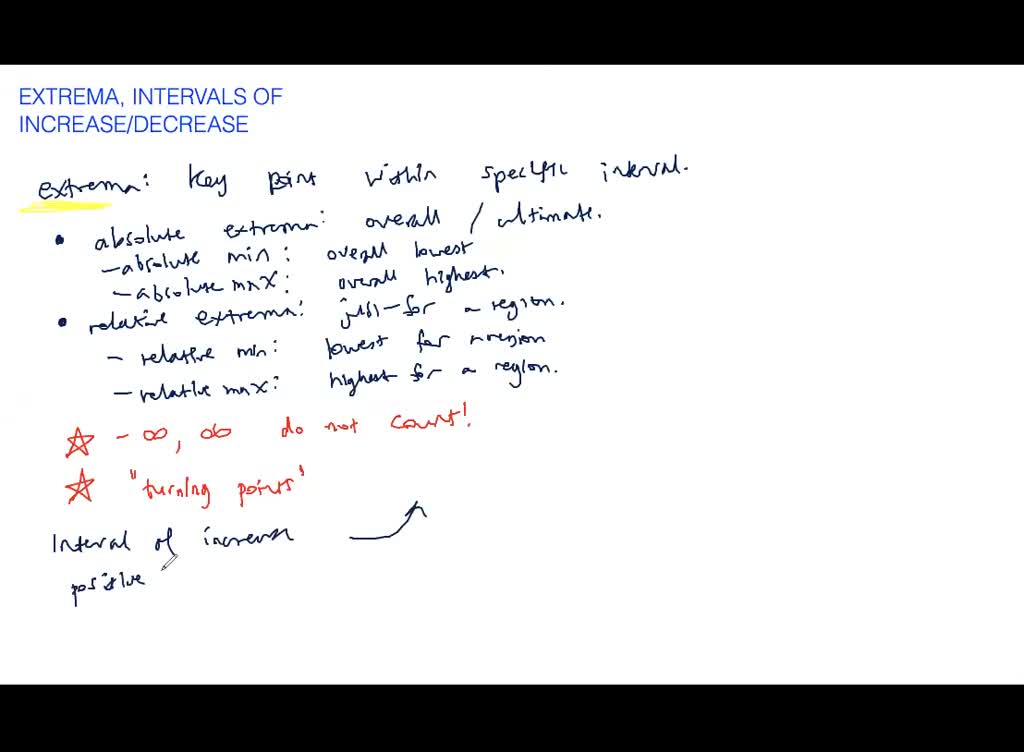 EXTREMA, INTERVALS OF
INCREASE/DECREASE
extrema: key point within specific interval.
• absolute extrema: overall / ultimate.
- absolute min: overall lowest
- absolute max: overall highest.
• relative extrema: just for a region.
- relative min: lowest for a region
- relative max: highest for a region.
☆ -∞, ∞ do not count!
☆ "turning points"
Interval of increase
positive